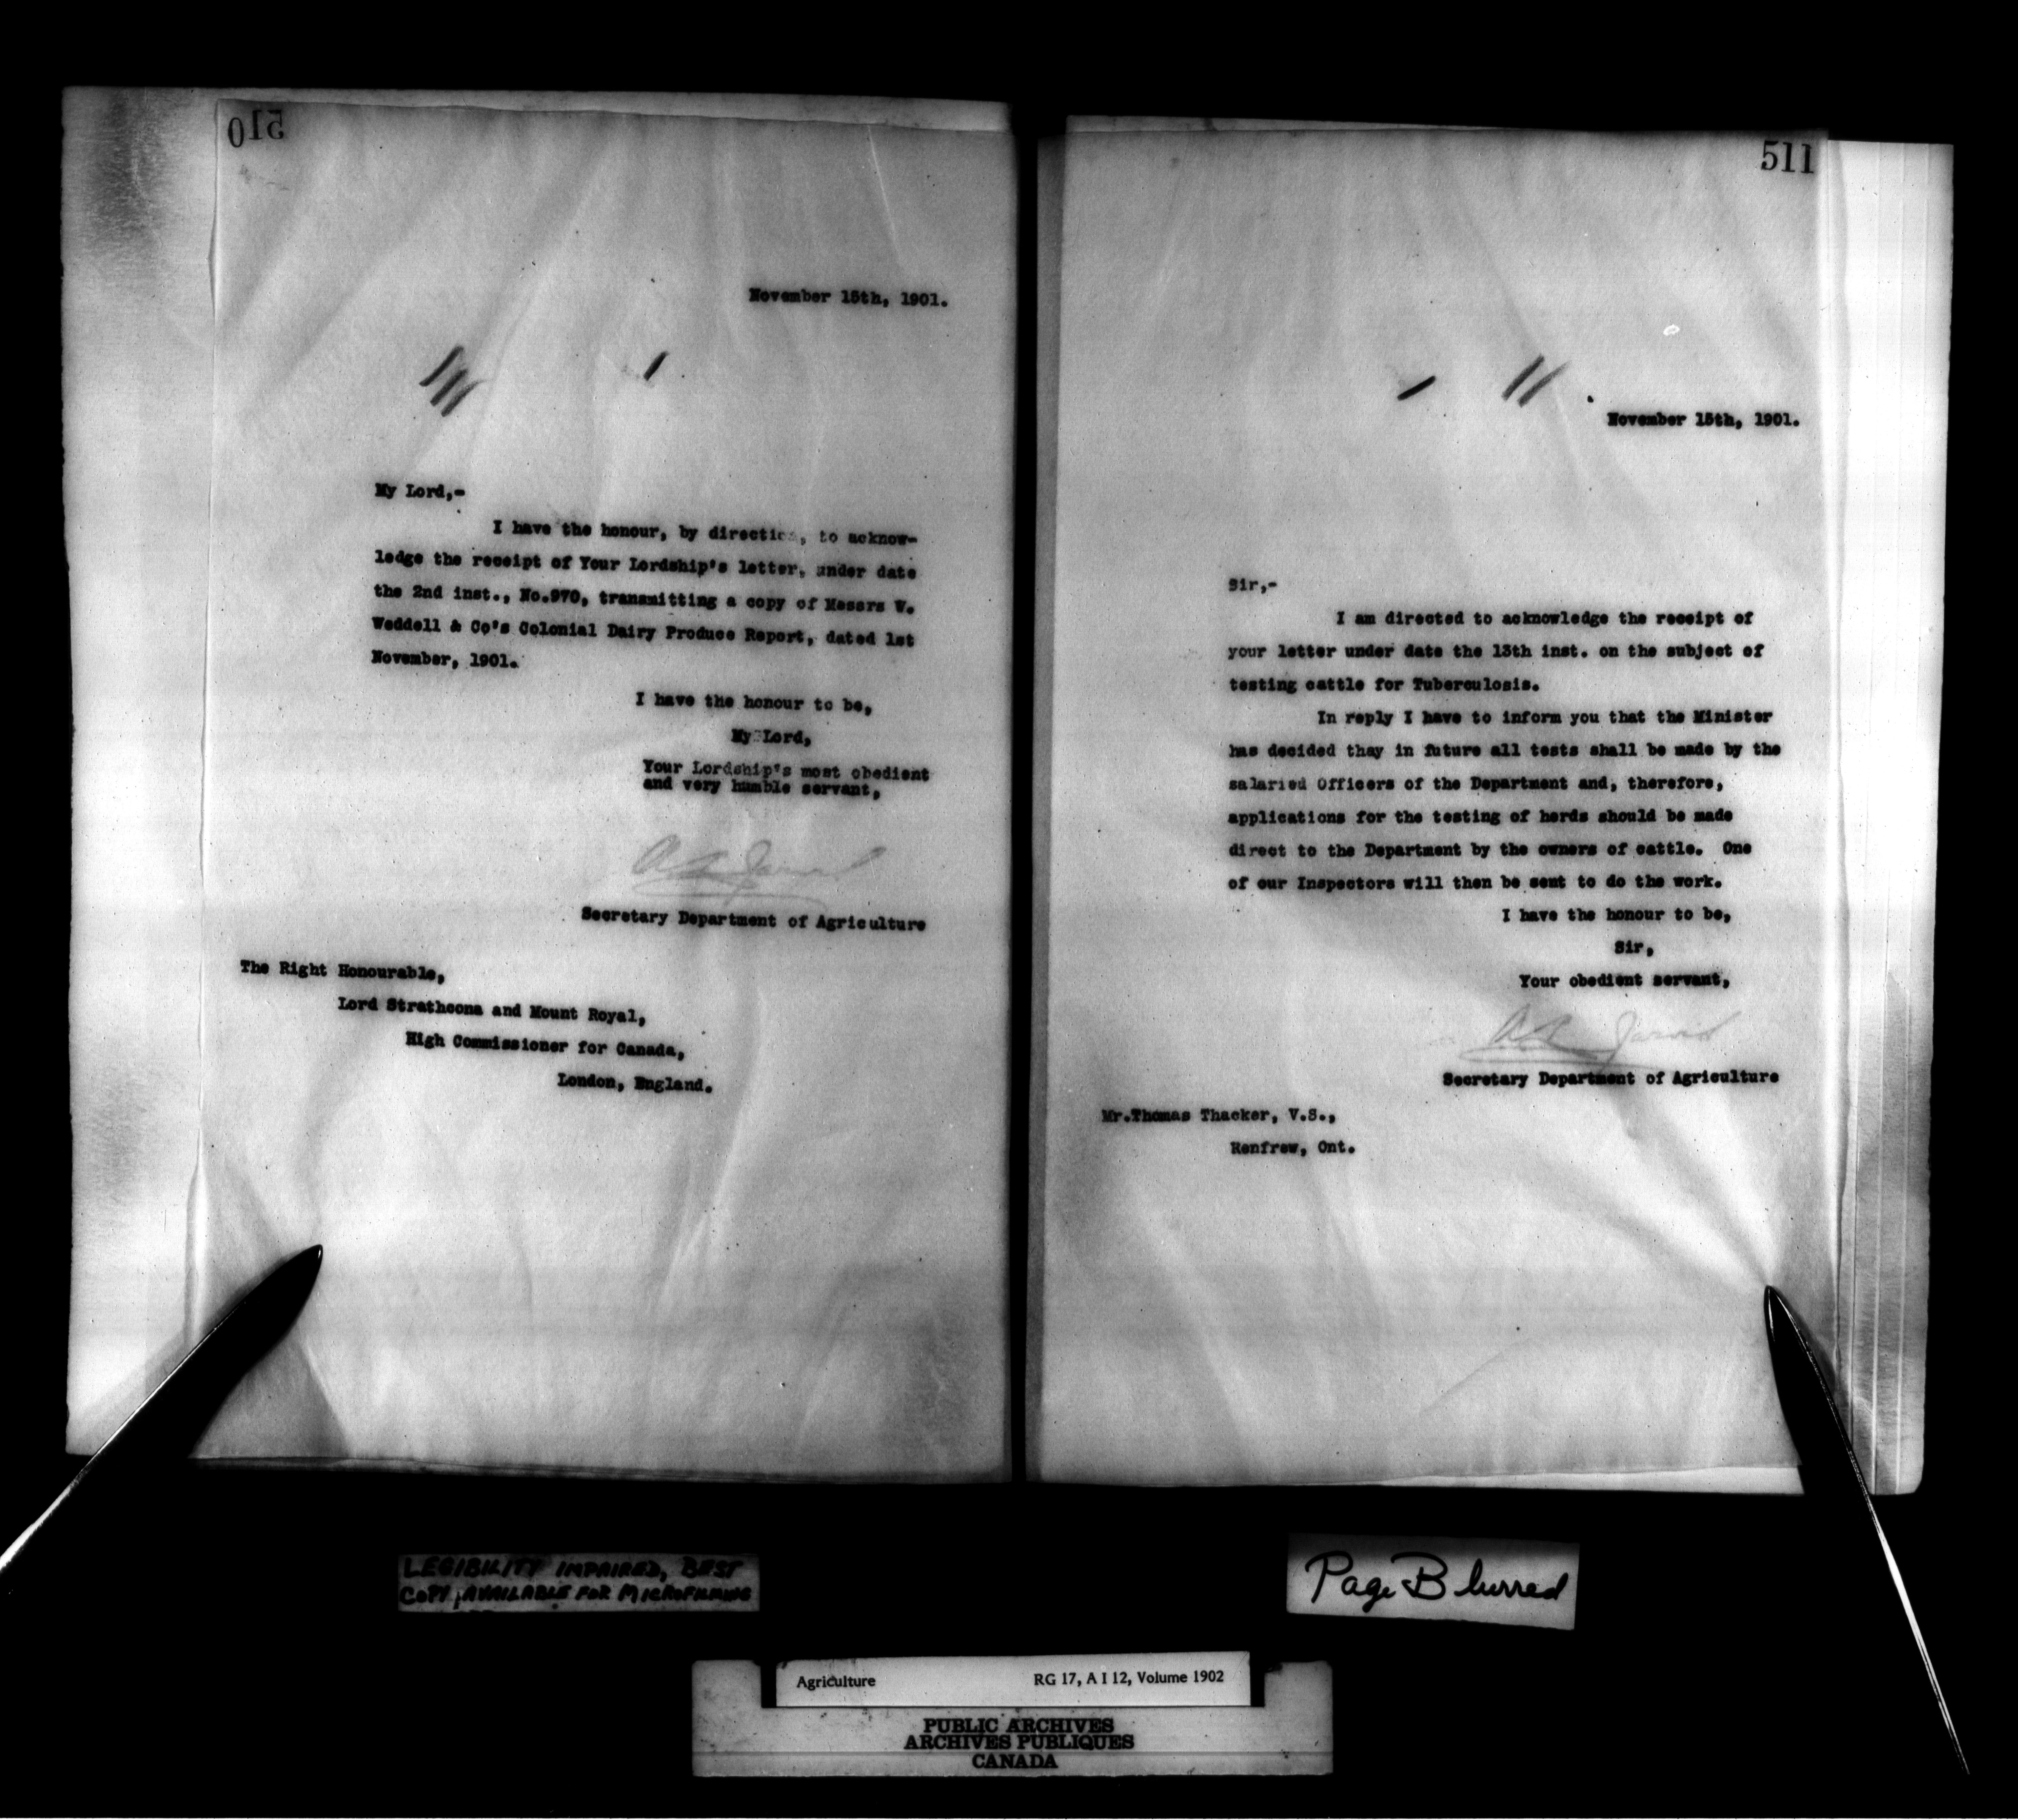 510
November 15th, 1901.
My Lord,-
I have the honour, by direction, to acknow-
ledge the receipt of Your Lordship's letter, under date
the 2nd inst., No.970, transmitting a copy of Messrs W.
Weddell & Co's Colonial Dairy Produce Report, dated 1st
November, 1901.
I have the honour to be,
My Lord,
Your Lordship's most obedient
and very humble servant,
Secretary Department of Agriculture
The Right Honourable,
Lord Strathcona and Mount Royal,
High Commissioner for Canada,
London, England.
511
November 15th, 1901.
Sir,-
I am directed to acknowledge the receipt of
your letter under date the 13th inst. on the subject of
testing cattle for Tuberculosis.
In reply I have to inform you that the Minister
has decided thay in future all tests shall be made by the
salaried Officers of the Department and, therefore,
applications for the testing of herds should be made
direct to the Department by the owners of cattle. One
of our Inspectors will then be sent to do the work.
I have the honour to be,
Sir,
Your obedient servant,
Jarvis
Secretary Department of Agriculture
Mr.Thomas Thacker, V.S.,
Renfrew, Ont.
LEGIBILITY IMPAIRED, BEST
COPY AVAILABLE FOR MICROFILMING
Page Blurred
Agriculture RG 17, A I 12, Volume 1902
PUBLIC ARCHIVES
ARCHIVES PUBLIQUES
CANADA